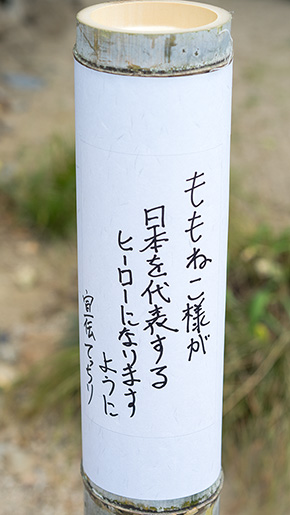 ももねこ様が
日本を代表する
ヒーローになります
ように
宣伝てっちり